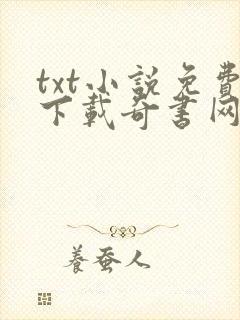 txt小説免費
下載奇書网
養蚕人